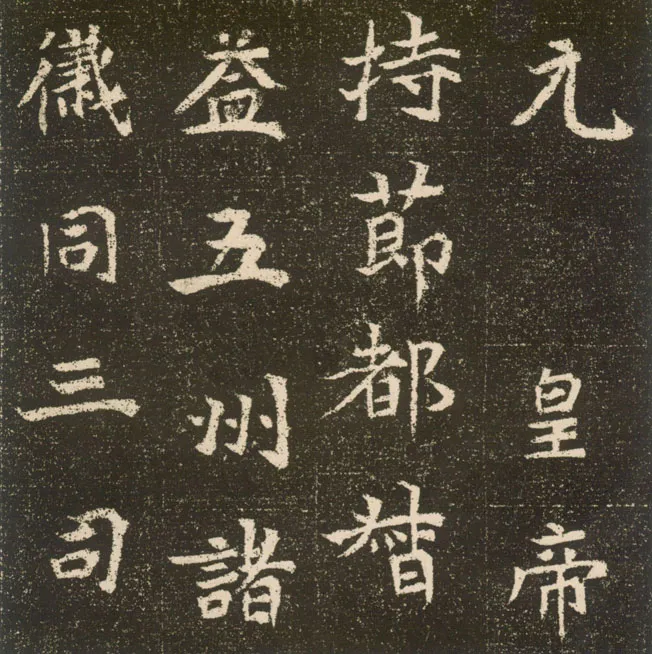 元 皇帝
持莭都督
益五州諸
儀同三司